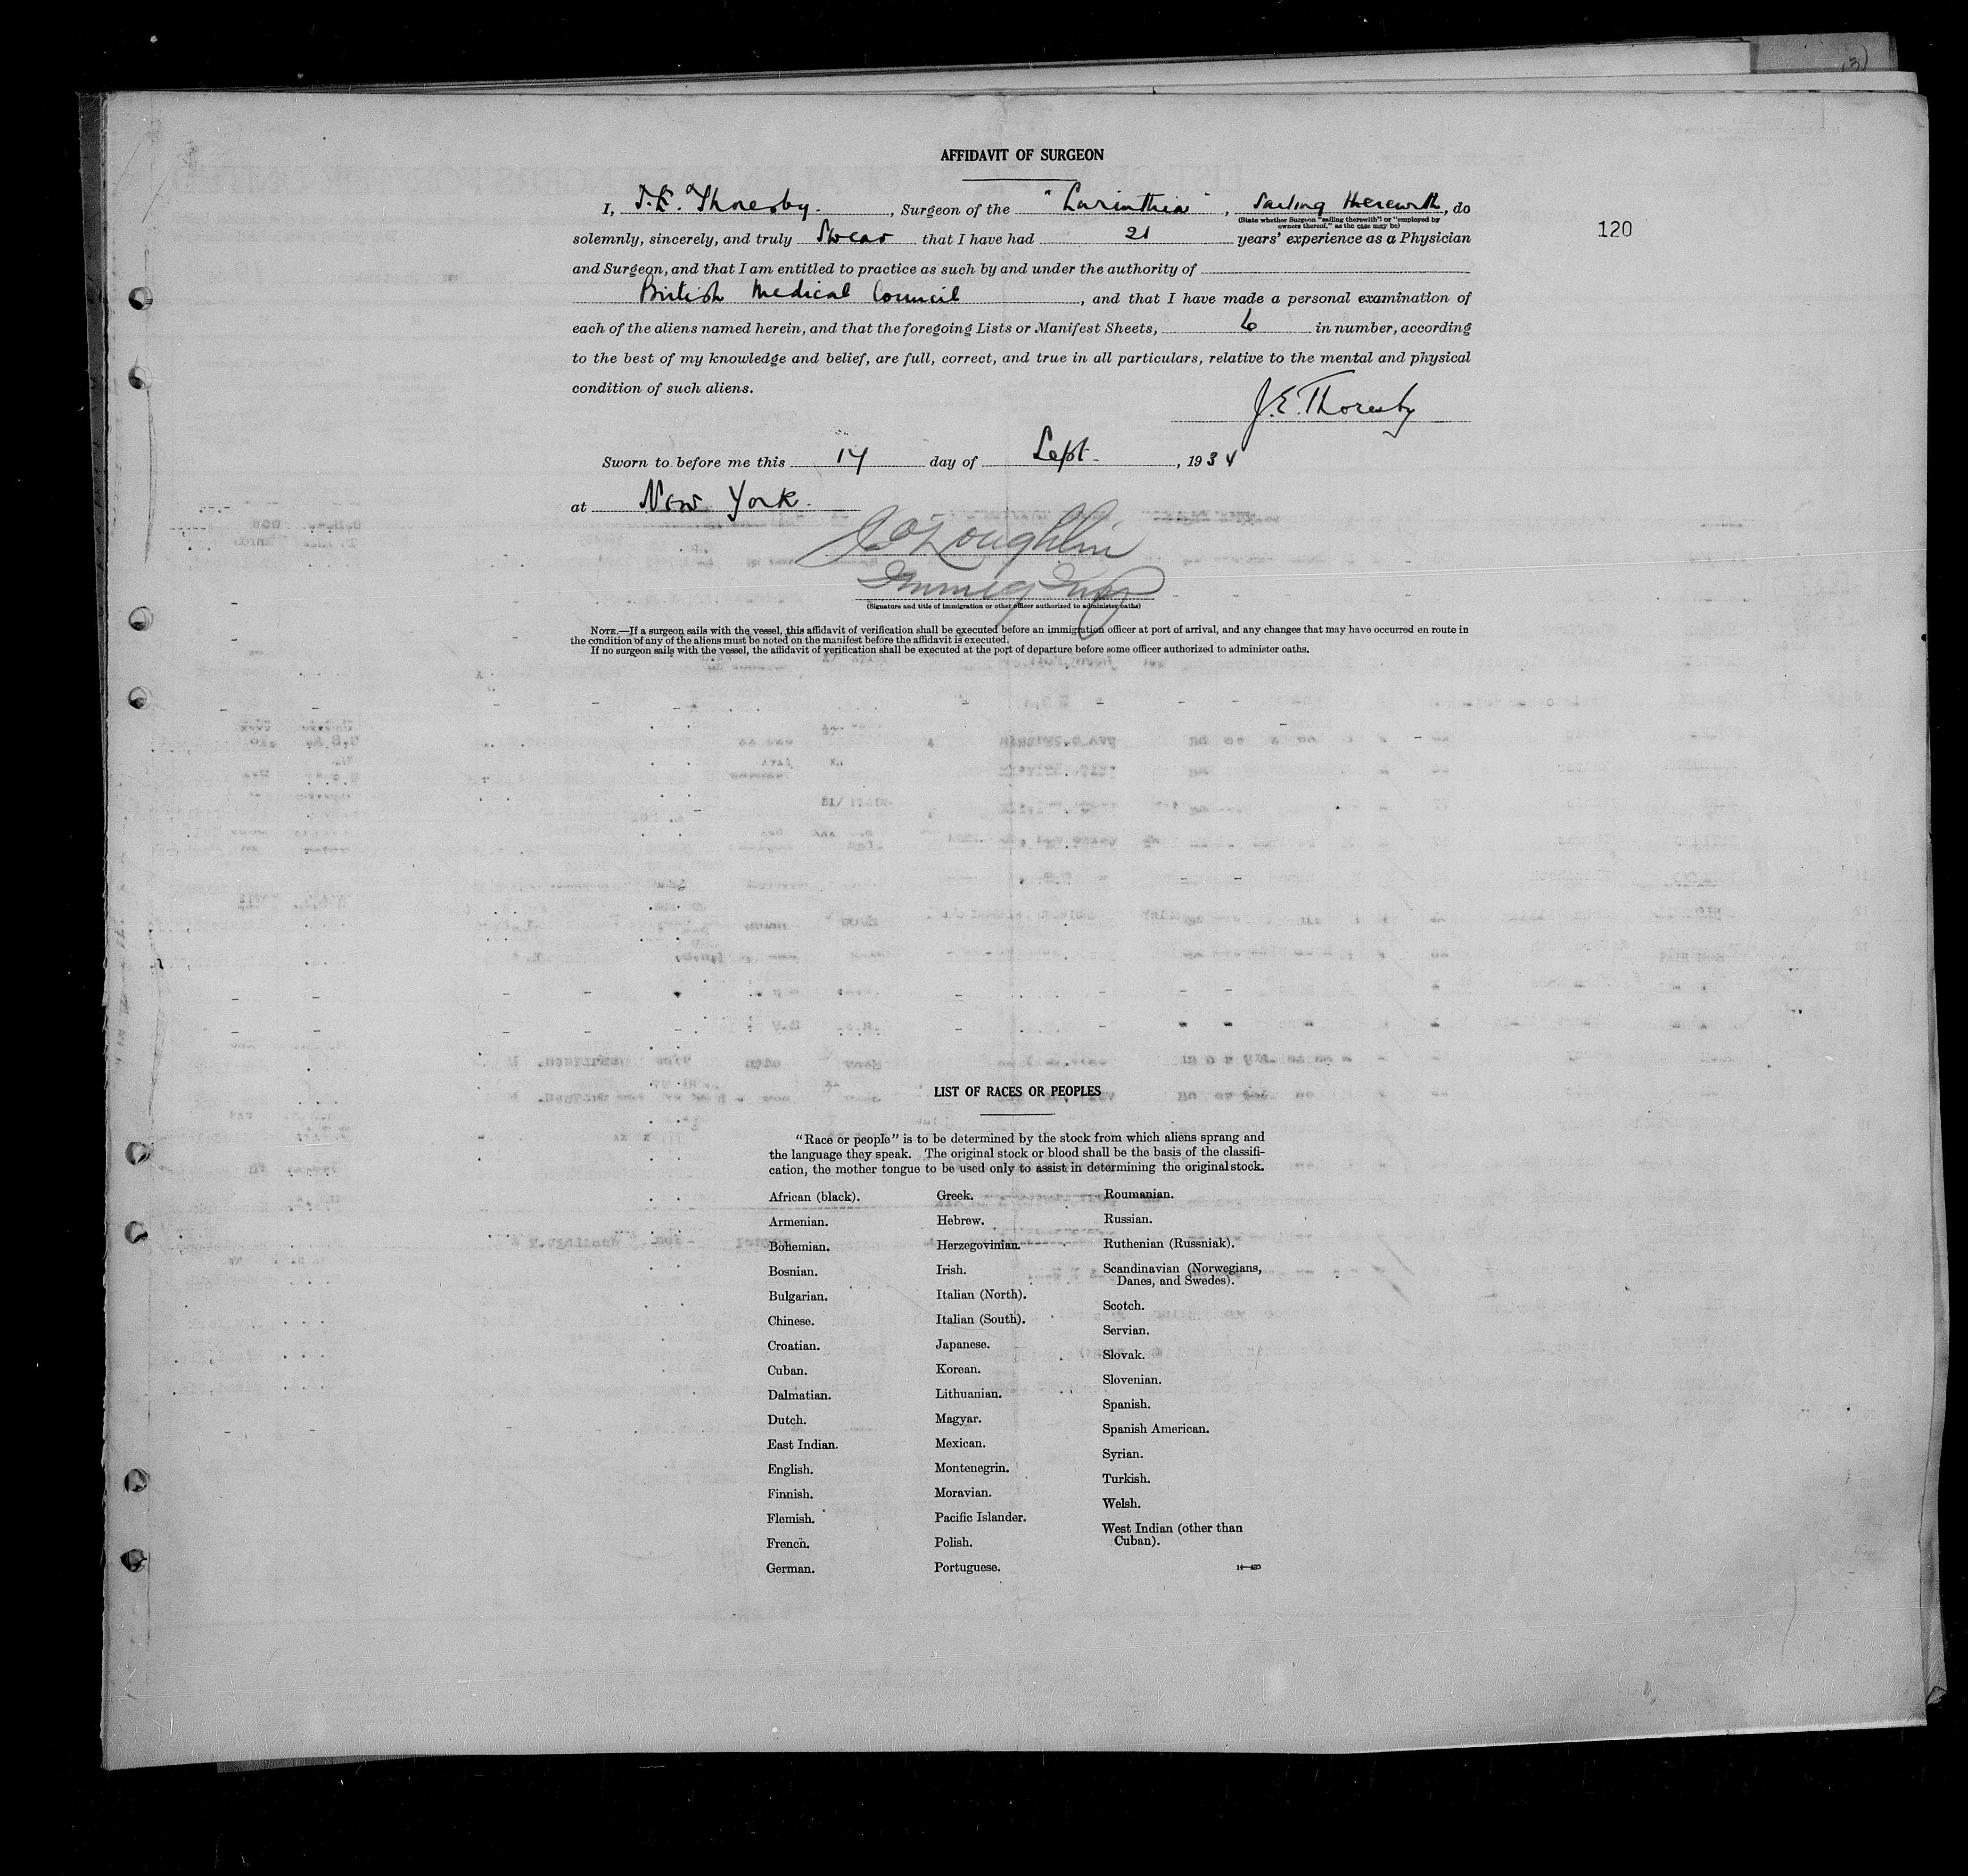 AFFIDAVIT OF SURGEON
I, J.E. Thoresby., Surgeon of the "Carinthia", Sailing therewith, do
(State whether Surgeon "sailing therewith" or "employed by
owners thereof," as the case may be)
120
solemnly, sincerely, and truly Swear that I have had 21 years' experience as a Physician
and Surgeon, and that I am entitled to practice as such by and under the authority of
British Medical Council, and that I have made a personal examination of
each of the aliens named herein, and that the foregoing Lists or Manifest Sheets, 6 in number, according
to the best of my knowledge and belief, are full, correct, and true in all particulars, relative to the mental and physical
condition of such aliens.
J.E. Thoresby
Sworn to before me this 14 day of Sept., 1934
at New York.
O'Loughlin
Immig Insp
(Signature and title of immigration or other officer authorized to administer oaths)
NOTE.—If a surgeon sails with the vessel, this affidavit of verification shall be executed before an immigration officer at port of arrival, and any changes that may have occurred en route in
the condition of any of the aliens must be noted on the manifest before the affidavit is executed.
If no surgeon sails with the vessel, the affidavit of verification shall be executed at the port of departure before some officer authorized to administer oaths.
LIST OF RACES OR PEOPLES
"Race or people" is to be determined by the stock from which aliens sprang and
the language they speak. The original stock or blood shall be the basis of the classifi-
cation, the mother tongue to be used only to assist in determining the original stock.
African (black).
Armenian.
Bohemian.
Bosnian.
Bulgarian.
Chinese.
Croatian.
Cuban.
Dalmatian.
Dutch.
East Indian.
English.
Finnish.
Flemish.
French.
German.
Greek.
Hebrew.
Herzegovinian.
Irish.
Italian (North).
Italian (South).
Japanese.
Korean.
Lithuanian.
Magyar.
Mexican.
Montenegrin.
Moravian.
Pacific Islander.
Polish.
Portuguese.
Roumanian.
Russian.
Ruthenian (Russniak).
Scandinavian (Norwegians,
Danes, and Swedes).
Scotch.
Servian.
Slovak.
Slovenian.
Spanish.
Spanish American.
Syrian.
Turkish.
Welsh.
West Indian (other than
Cuban).